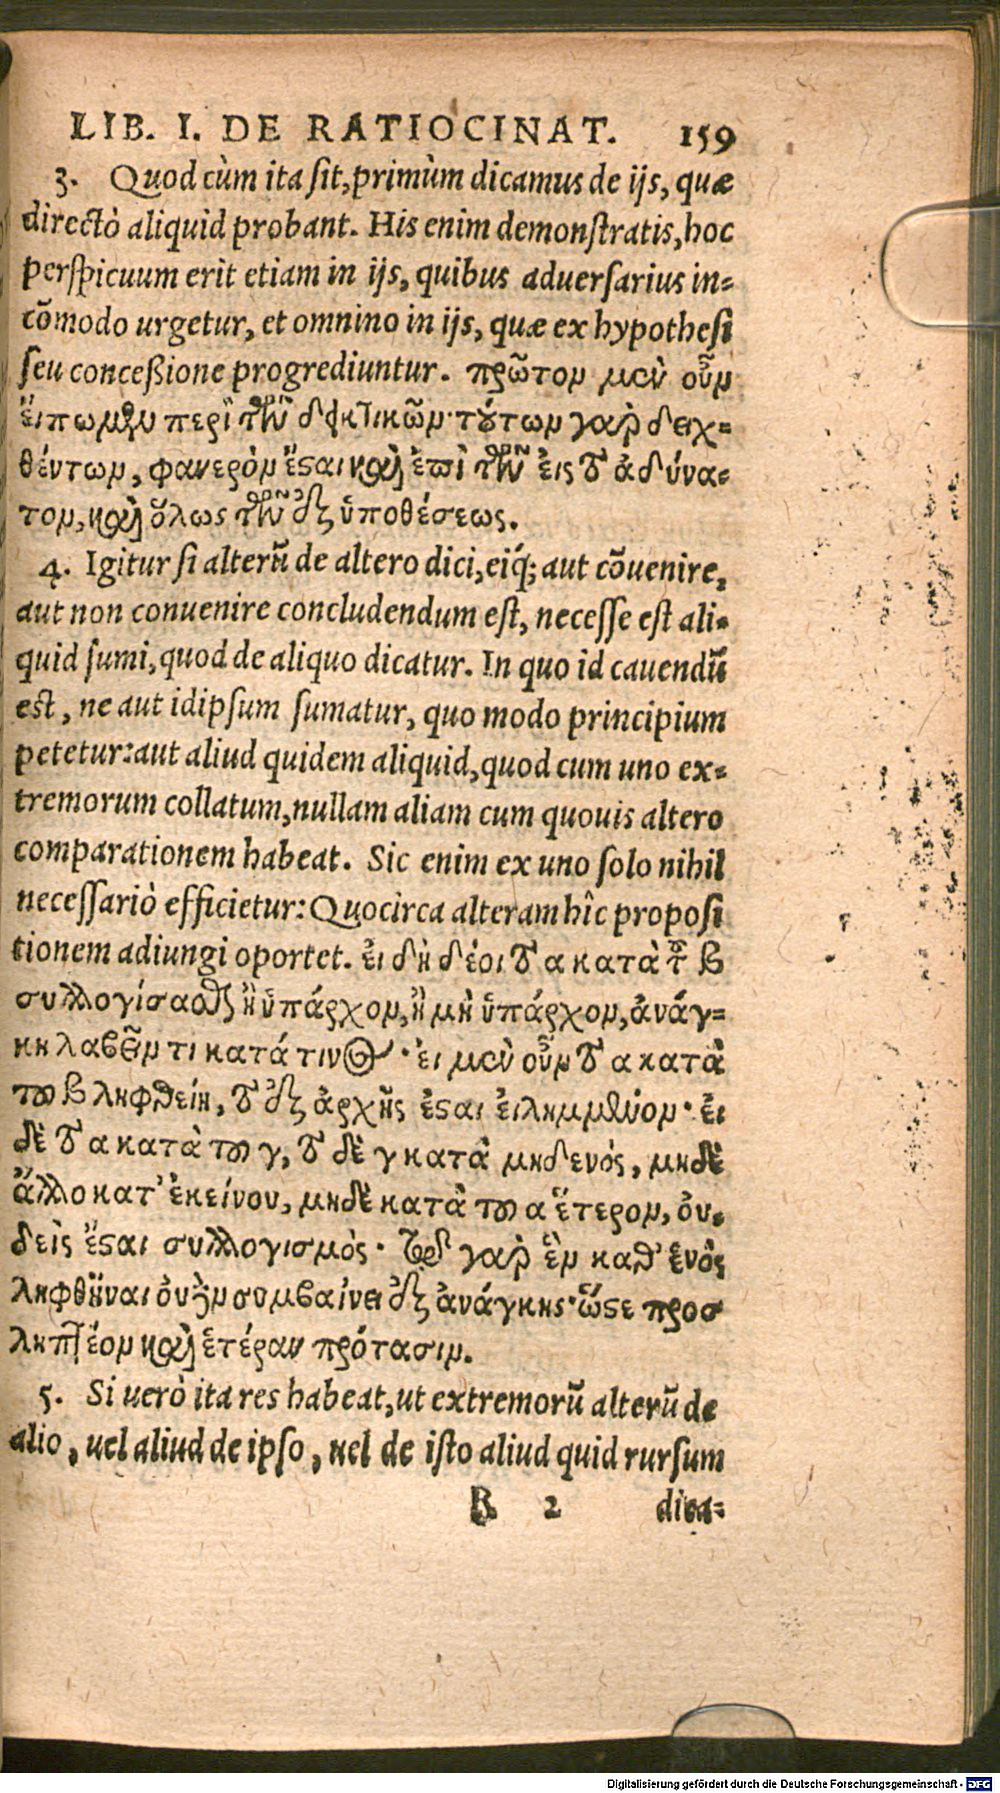 LIB. I. DE RATIOCINAT. 159
3. Quod cùm ita sit, primùm dicamus de ijs, quæ
directò aliquid probant. His enim demonstratis, hoc
perspicuum erit etiam in ijs, quibus adversarius in-
cōmodo urgetur, et omnino in ijs, quæ ex hypothesi
seu conceßione progrediuntur. πρῶτον μὲν οὖν
ἔιπωμεν περὶ τῶν δεικτικῶν· τούτων γὰρ δειχ-
θέντων, φανερὸν ἔςαι καὶ ἐπὶ τῶν ἐις τὸ ἀδύνα-
τον, καὶ ὅλως τῶν ἐξ ὑποθέσεως.
4. Igitur si alterū de altero dici, eíq; aut cōuenire,
aut non conuenire concludendum est, necesse est ali-
quid sumi, quod de aliquo dicatur. In quo id cauendū
est, ne aut idipsum sumatur, quo modo principium
petetur: aut aliud quidem aliquid, quod cum uno ex-
tremorum collatum, nullam aliam cum quouis altero
comparationem habeat. Sic enim ex uno solo nihil
necessariò efficietur: Quocirca alteram hîc proposi
tionem adiungi oportet. ἐι δὴ δέοι τὸ α κατὰ τοῦ β
συλλογίσαθαι ἢ ὑπάρχον, ἢ μὴ ὑπάρχον, ἀνάγ-
κη λαβεῖν τι κατά τινος· ἐι μὲν οὖν τὸ α κατὰ
τοῦ β ληφθείη, τὸ ἐξ ἀρχῆς ἔςαι ἐιλημμένον· ἐι
δὲ τὸ α κατὰ τοῦ γ, τὸ δὲ γ κατὰ μηδενός, μηδὲ
ἄλλο κατ' ἐκείνου, μηδὲ κατὰ τοῦ α ἕτερον, ὀυ-
δεὶς ἔςαι συλλογισμός· τῷ γὰρ ἓν καθ' ἑνὸς
ληφθῆναι ὀυδὲν συμβαίνει ἐξ ἀνάγκης· ὥςε προσ
ληπτέον καὶ ἑτέραν πρότασιν.
5. Si uerò ita res habeat, ut extremorū alterū de
alio, uel aliud de ipso, uel de isto aliud quid rursum
R 2 dica-
Digitalisierung gefördert durch die Deutsche Forschungsgemeinschaft - DFG